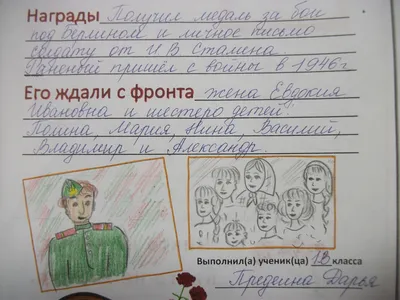 Награды Получил медаль за бои
под берлином и личное письмо
солдату от И В Сталина.
Раненый пришёл с войны в 1946г
Его ждали с фронта жена Евдокия
Ивановна и шестеро детей:
Полина, Мария, Нина, Василий,
Владимир и Александр.
Выполнил(а) ученик(ца) 1В класса
Дарья